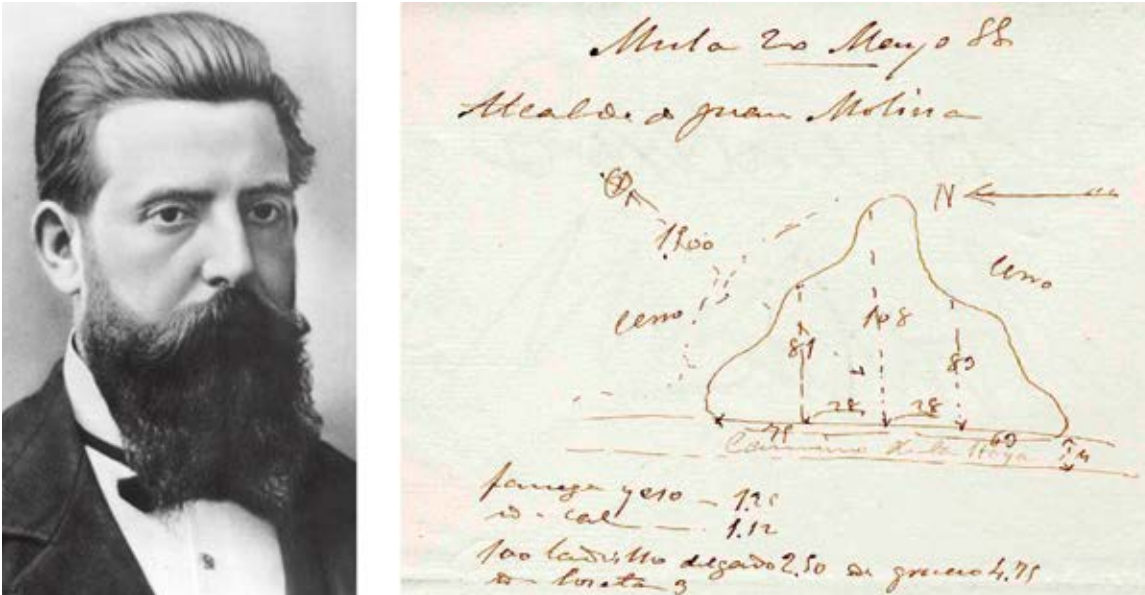 Mula 20 Mayo 88
Alcalde d Juan Molina
N
1200
Cerro
Cerro
108
81
83
28 28
Camino de la Hoya
fanega yeso — 1.25
id - cal — 1.12
100 ladrillo delgado 2.50 id grueso 4.75
id loseta 3